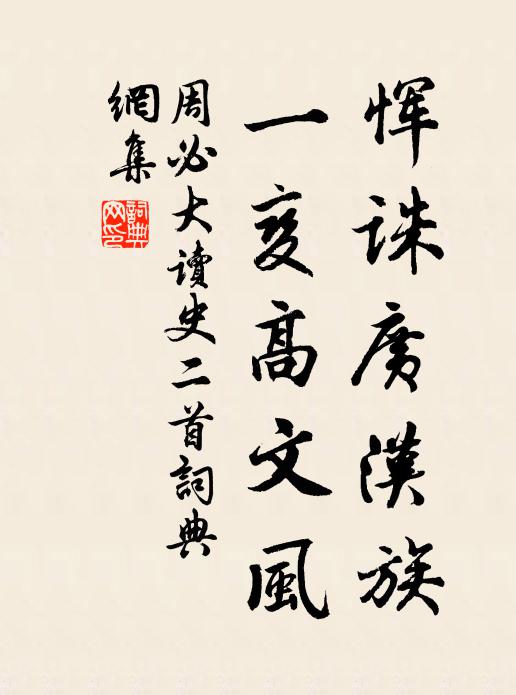 恽誅廣漢族
一变高文風
周必大讀史二首詞典
網集
詞典
网印